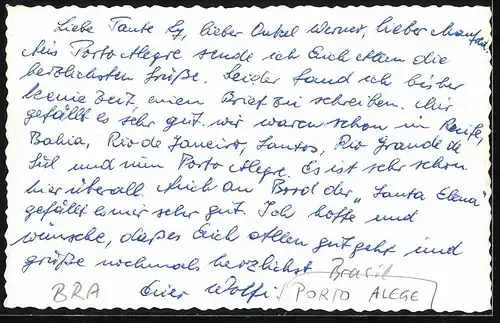 Liebe Tante Ly, lieber Onkel Werner, lieber Manfred.
Aus Porto Alegre sende ich Euch Allen die
herzlichsten Grüße. Leider fand ich bisher
keine Zeit, einen Brief zu schreiben. Mir
gefällt es sehr gut. wir waren schon in Recife,
Bahia, Rio de Janeiro, Santos, Rio Grande do
Sul und nun Porto Alegre. Es ist sehr schön
hier überall. Auch an Bord der „Santa Elena"
gefällt es mir sehr gut. Ich hoffe und
wünsche, daß es Euch Allen gut geht und
grüße nochmals herzlichst Brasil
BRA Euer Wolfi! PORTO ALEGE